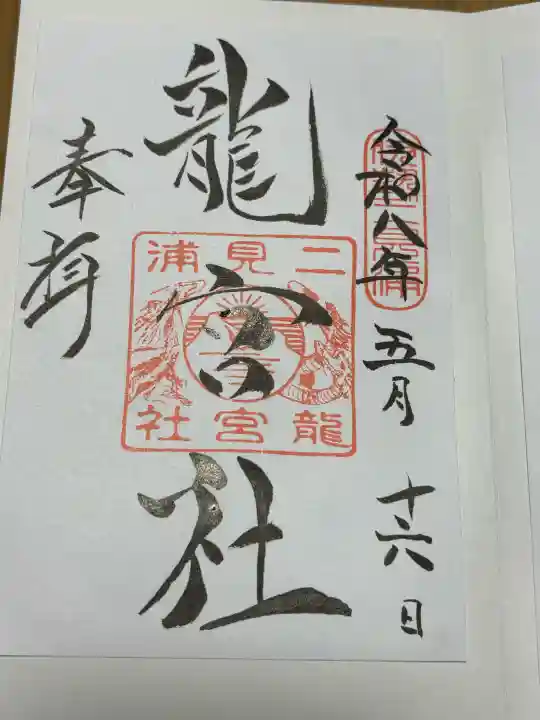 令和八年 五月 十六日
龍宮社
奉拝
二見浦
龍宮社